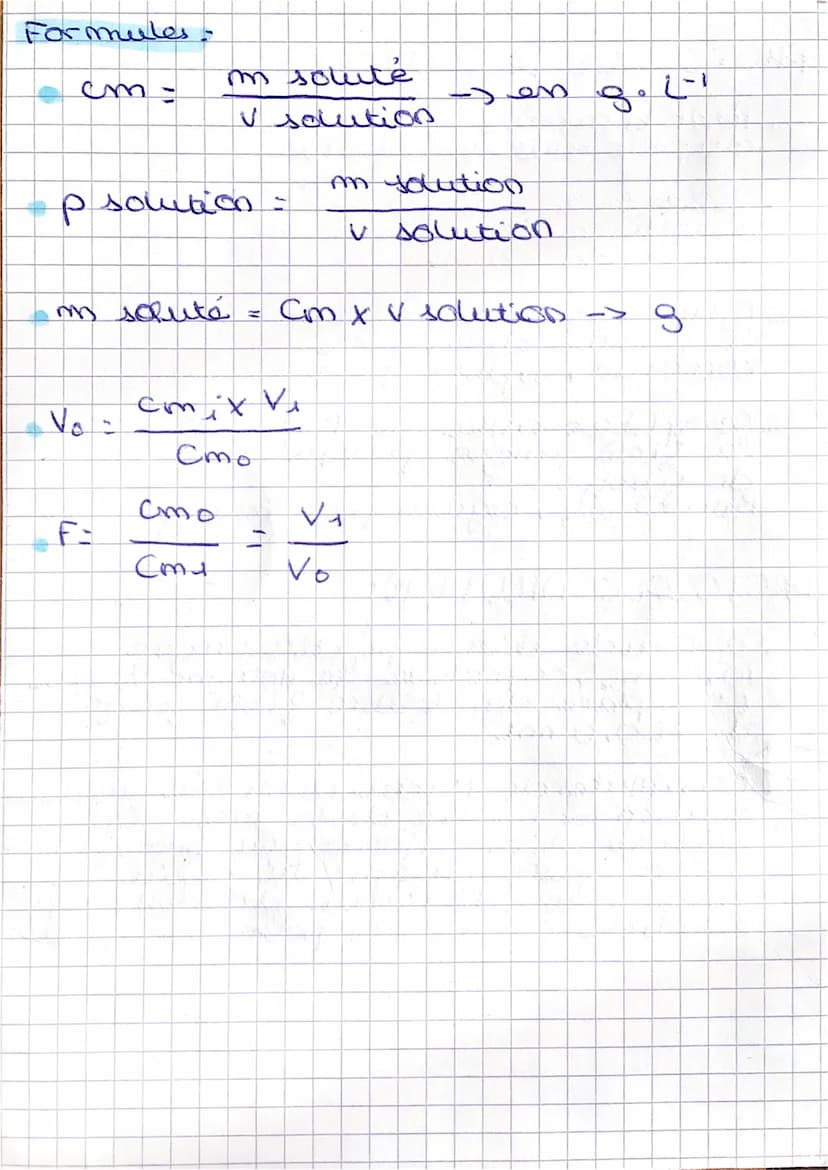 Formules :
• cm = m soluté / v solution -> en g. L⁻¹
• ρ solution = m solution / v solution
• m soluté = Cm x v solution -> g
• V₀ = cm₁ x V₁ / Cm₀
• F = Cm₀ / Cm₁ = V₁ / V₀